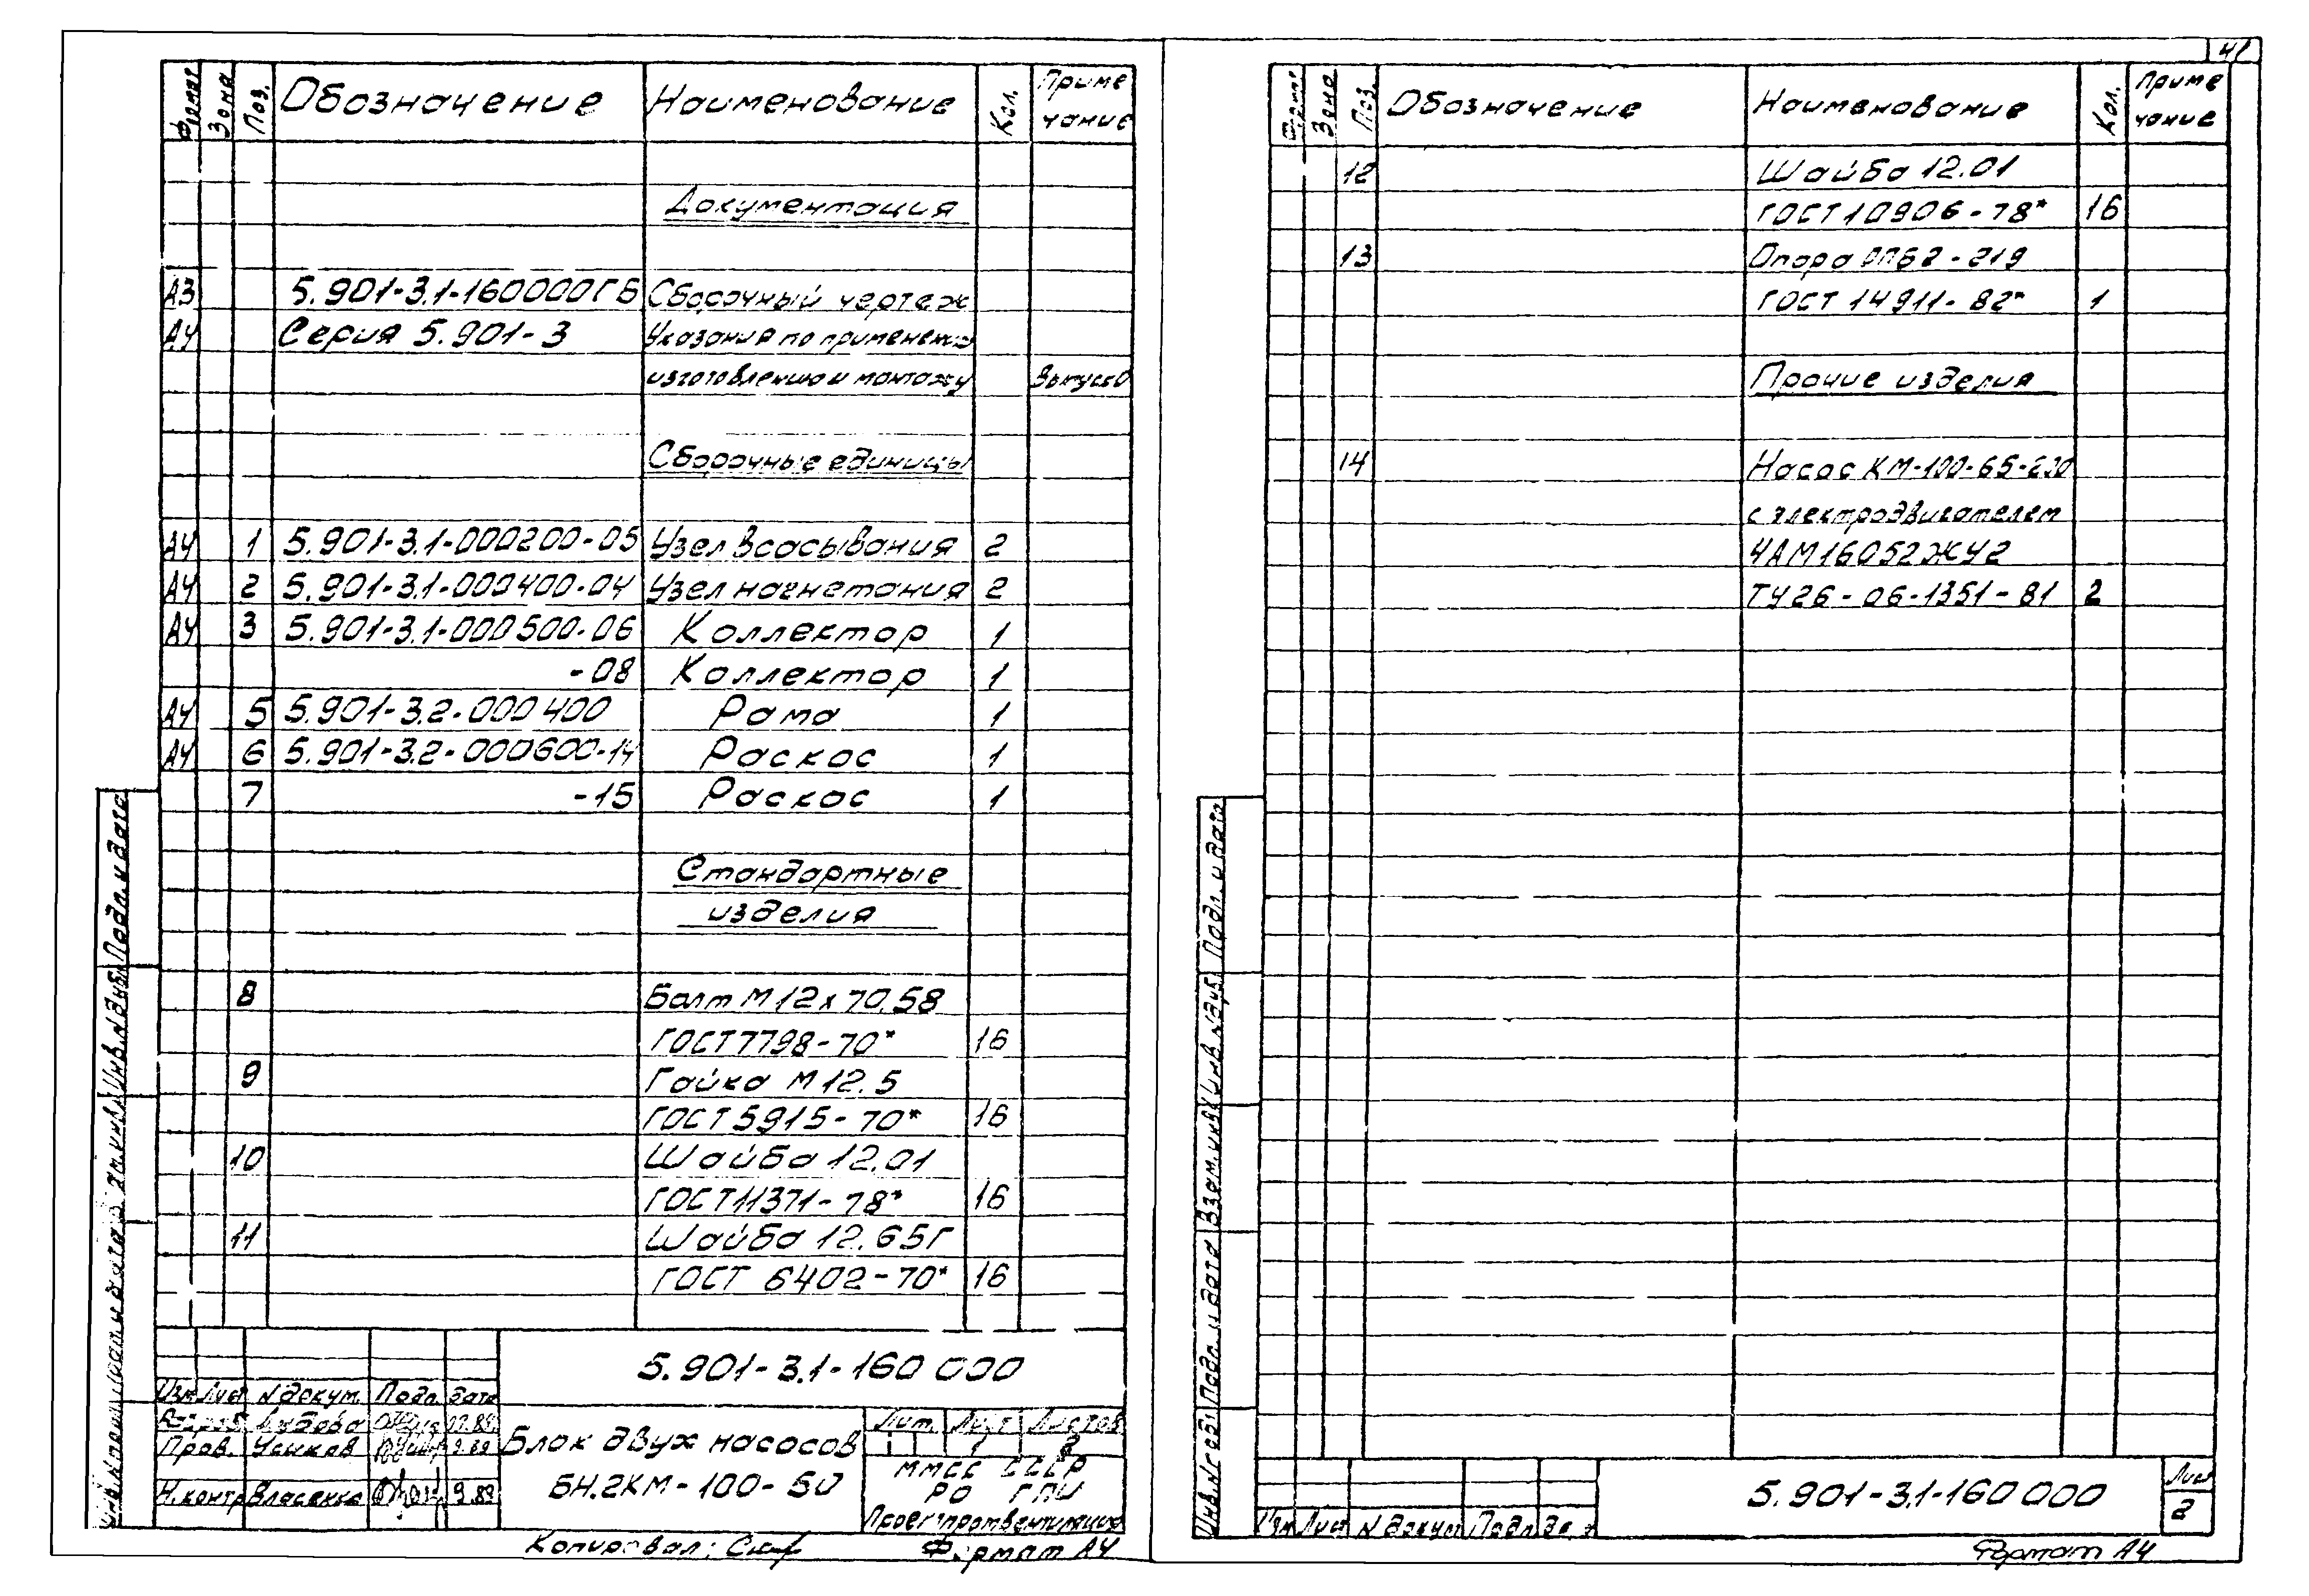 Формат Зона Поз. Обозначение Наименование Кол. Приме
чание
Документация
А3 5.901-3.1-160000ГБ Сборочный чертеж
А4 Серия 5.901-3 Указания по применению
изготовлению и монтажу Выпуск0
Сборочные единицы
А4 1 5.901-3.1-000200-05 Узел всасывания 2
А4 2 5.901-3.1-000400-04 Узел нагнетания 2
А4 3 5.901-3.1-000500-06 Коллектор 1
-08 Коллектор 1
А4 5 5.901-3.2-000400 Рама 1
А4 6 5.901-3.2-000600-14 Раскос 1
7 -15 Раскос 1
Стандартные
изделия
8 Болт М12х70.58
ГОСТ7798-70* 16
9 Гайка М12.5
ГОСТ5915-70* 16
10 Шайба 12.01
ГОСТ11371-78* 16
11 Шайба 12.65Г
ГОСТ 6402-70* 16
5.901-3.1-160 000
Изм Лист N докум. Подп. Дата
Пров. Усиков 9.89
Н.контр Власенко 9.89
Блок двух насосов
БН.2КМ-100-50
Лит. Лист Листов
1 2
ММСС СССР
РО ГПИ
Проектпромвентиляция
Копировал: Формат А4
Подп. и дата
Инв.N дубл.
41
Формат Зона Поз. Обозначение Наименование Кол. Приме
чание
12 Шайба 12.01
ГОСТ10906-78* 16
13 Опора ОПБ2-219
ГОСТ 14911-82* 1
Прочие изделия
14 Насос КМ-100-65-200
с электродвигателем
4АМ160S2ЖУ2
ТУ26-06-1351-81 2
Подп. и дата
Инв.N дубл.
Взам.инв.N
Подп. и дата
Инв.N подл.
Изм Лист N докум Подп Дата
5.901-3.1-160 000
Лист
2
Формат А4